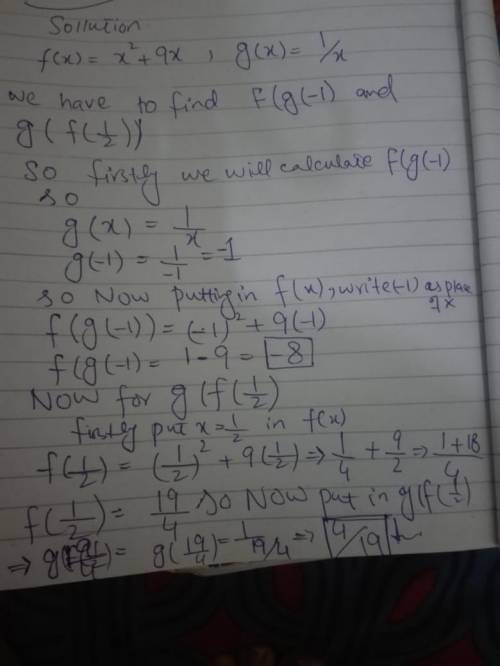 Sollution
f(x) = x² + 9x , g(x) = 1/x
we have to find F(g(-1) and
g(f(1/2))
So firstly we will calculate f(g(-1)
so
g(x) = 1/x
g(-1) = 1/-1 = -1
so Now putting in f(x), write(-1) as place of x
f(g(-1)) = (-1)² + 9(-1)
f(g(-1) = 1-9 = -8
NOW for g(f(1/2)
firstly put x=1/2 in f(x)
f(1/2) = (1/2)² + 9(1/2) ⇒ 1/4 + 9/2 ⇒ 1+18/4
f(1/2) = 19/4 so NOW put in g(f(1/2)
⇒ g(19/4) = g(19/4) = 1/19/4 ⇒ 4/19